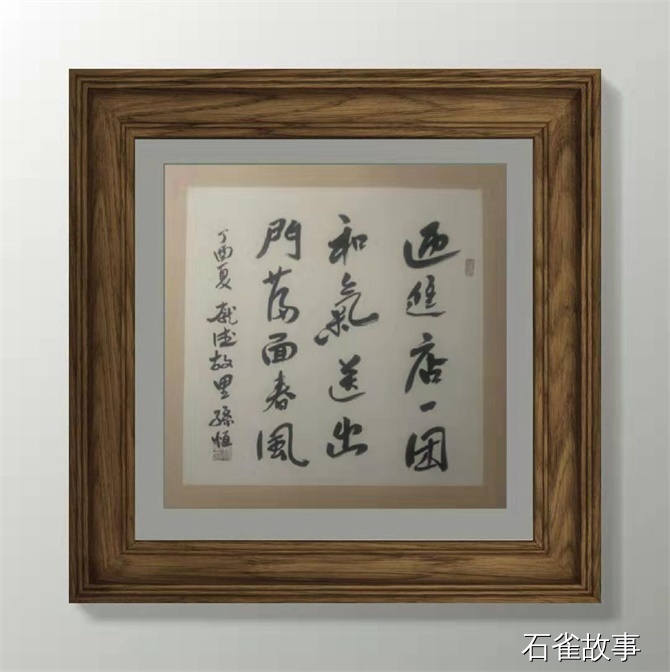 迎進店一团
和氣送出
門滿面春風
丁酉夏 德故里 孫恒
石雀故事